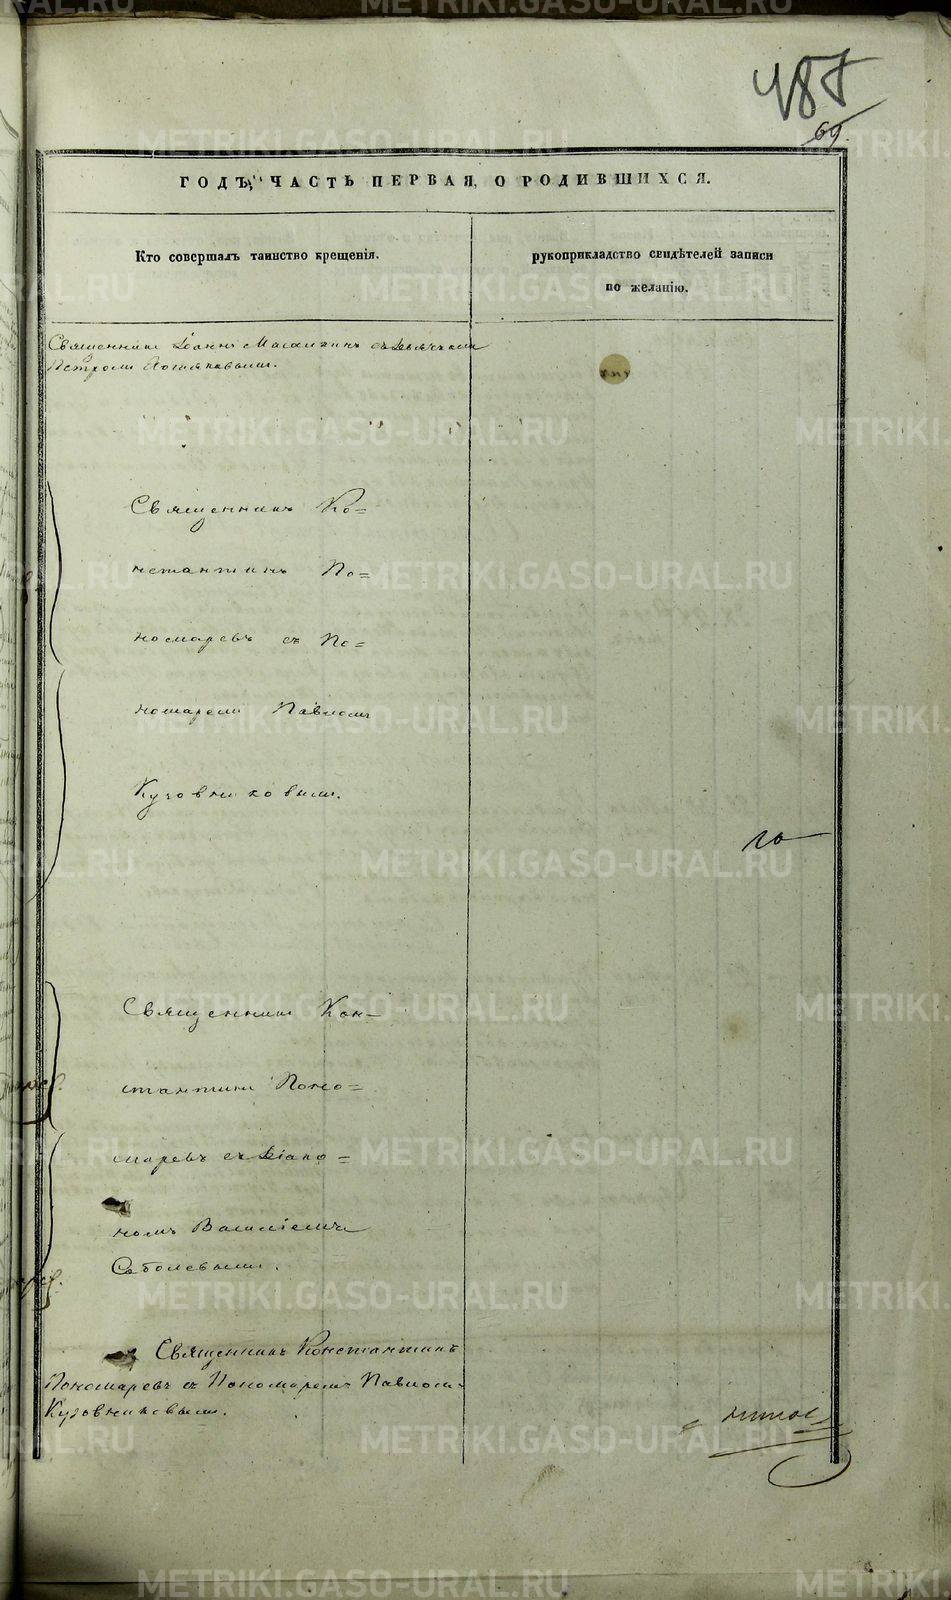 487
69.
ГОДЪ, ЧАСТЬ ПЕРВАЯ, О РОДИВШИХСЯ.
Кто совершалъ таинство крещенія.
рукоприкладство свидѣтелей записи
по желанію.
Священникъ Іоаннъ съ Дьячкомъ
Петромъ
Священникъ Ко=
нстантинъ По=
номаревъ съ По=
номаремъ Павломъ
Кузовниковымъ.
Священникъ Кон-
стантинъ Поно=
маревъ съ Діако=
номъ Василіемъ
Соболевымъ.
Священникъ Константинъ
Пономаревъ съ Пономаремъ Павломъ
Кузовниковымъ.
METRIKI.GASO-URAL.RU